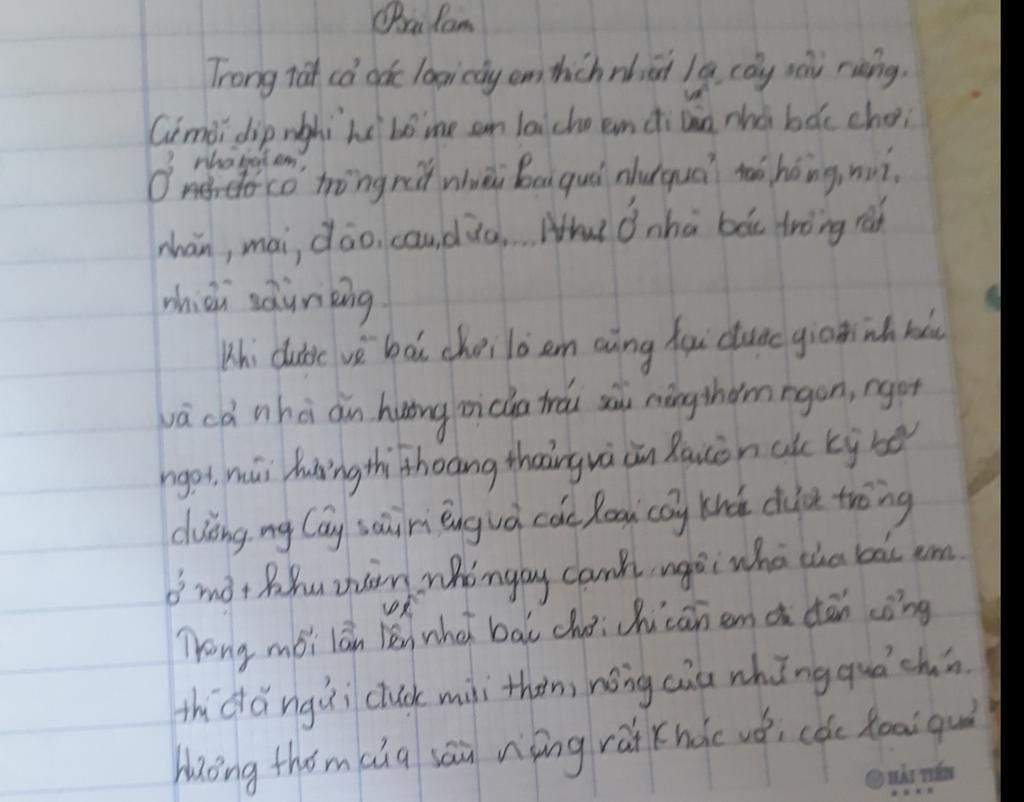 Bài làm
Trong tất cả các loại cây em thích nhất là cây sầu riêng.
Cứ mỗi dịp nghỉ hè bố mẹ em lại cho em đi về nhà bác chơi.
Ở nhà bác em có trồng rất nhiều loại quả như quả táo, hồng, núi,
nhãn, mai, đào, cau, dừa,... Như ở nhà bác trồng rất
nhiều sầu riêng
Khi được về bác chơi là em cũng lại được gia đình bác
và cả nhà ăn hương vị của trái sầu riêng thơm ngon, ngọt
ngọt, mùi hương thì thoang thoảng và ăn lại còn cực kỳ bổ
dưỡng. Cây sầu riêng và các loại cây khác được trồng
ở một khu vườn nhỏ ngay cạnh ngôi nhà của bác em.
Trong mỗi lần về nhà bác chơi chỉ cần em đi đến cổng
thì đã ngửi được mùi thơm, nồng của những quả chín.
Hương thơm của sầu riêng rất khác với các loại quả
HẢI TIẾN